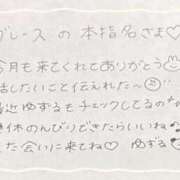 グレースの本指名さま♡
今月も来てくれてありがとう
話したいこと伝えれた~
最近ゆずるもチェックしてるの
休のんびりできたらいいね
た会いに来てね♡ ゆずる